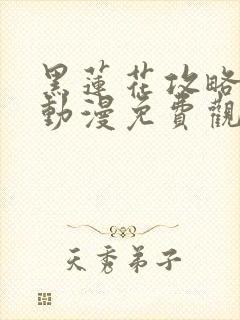 黑蓮花攻略
動漫免費觀
天秀弟子